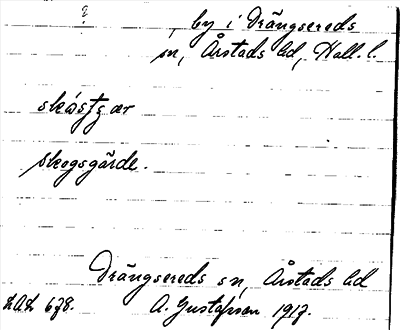 ?
, by i Drängsereds
sn, Årstads hd, Hall. l.
skogsgärde.
Drängsereds sn, Årstads hd
LAL 678. A. Gustafsson 1917.